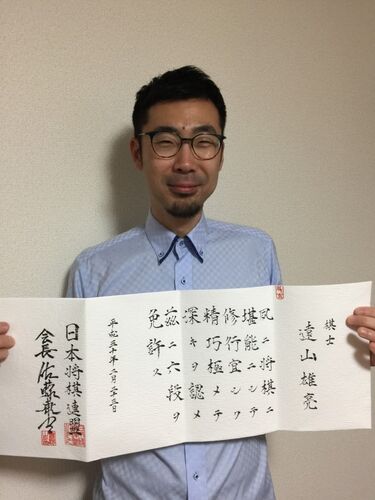 棋士
遠山雄亮
夙ニ将棋ニ
堪能ニシテ
修行宜シク
精巧極メテ
深キヲ認メ
茲ニ六段ヲ
免許ス
平成三十年二月二十三日
日本将棋連盟
会長佐藤康光